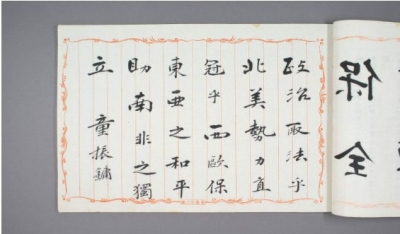 保全
政治取法乎
北美勢力直
冠乎西歐保
東亜之和平
助南非之獨
立 童振鏞